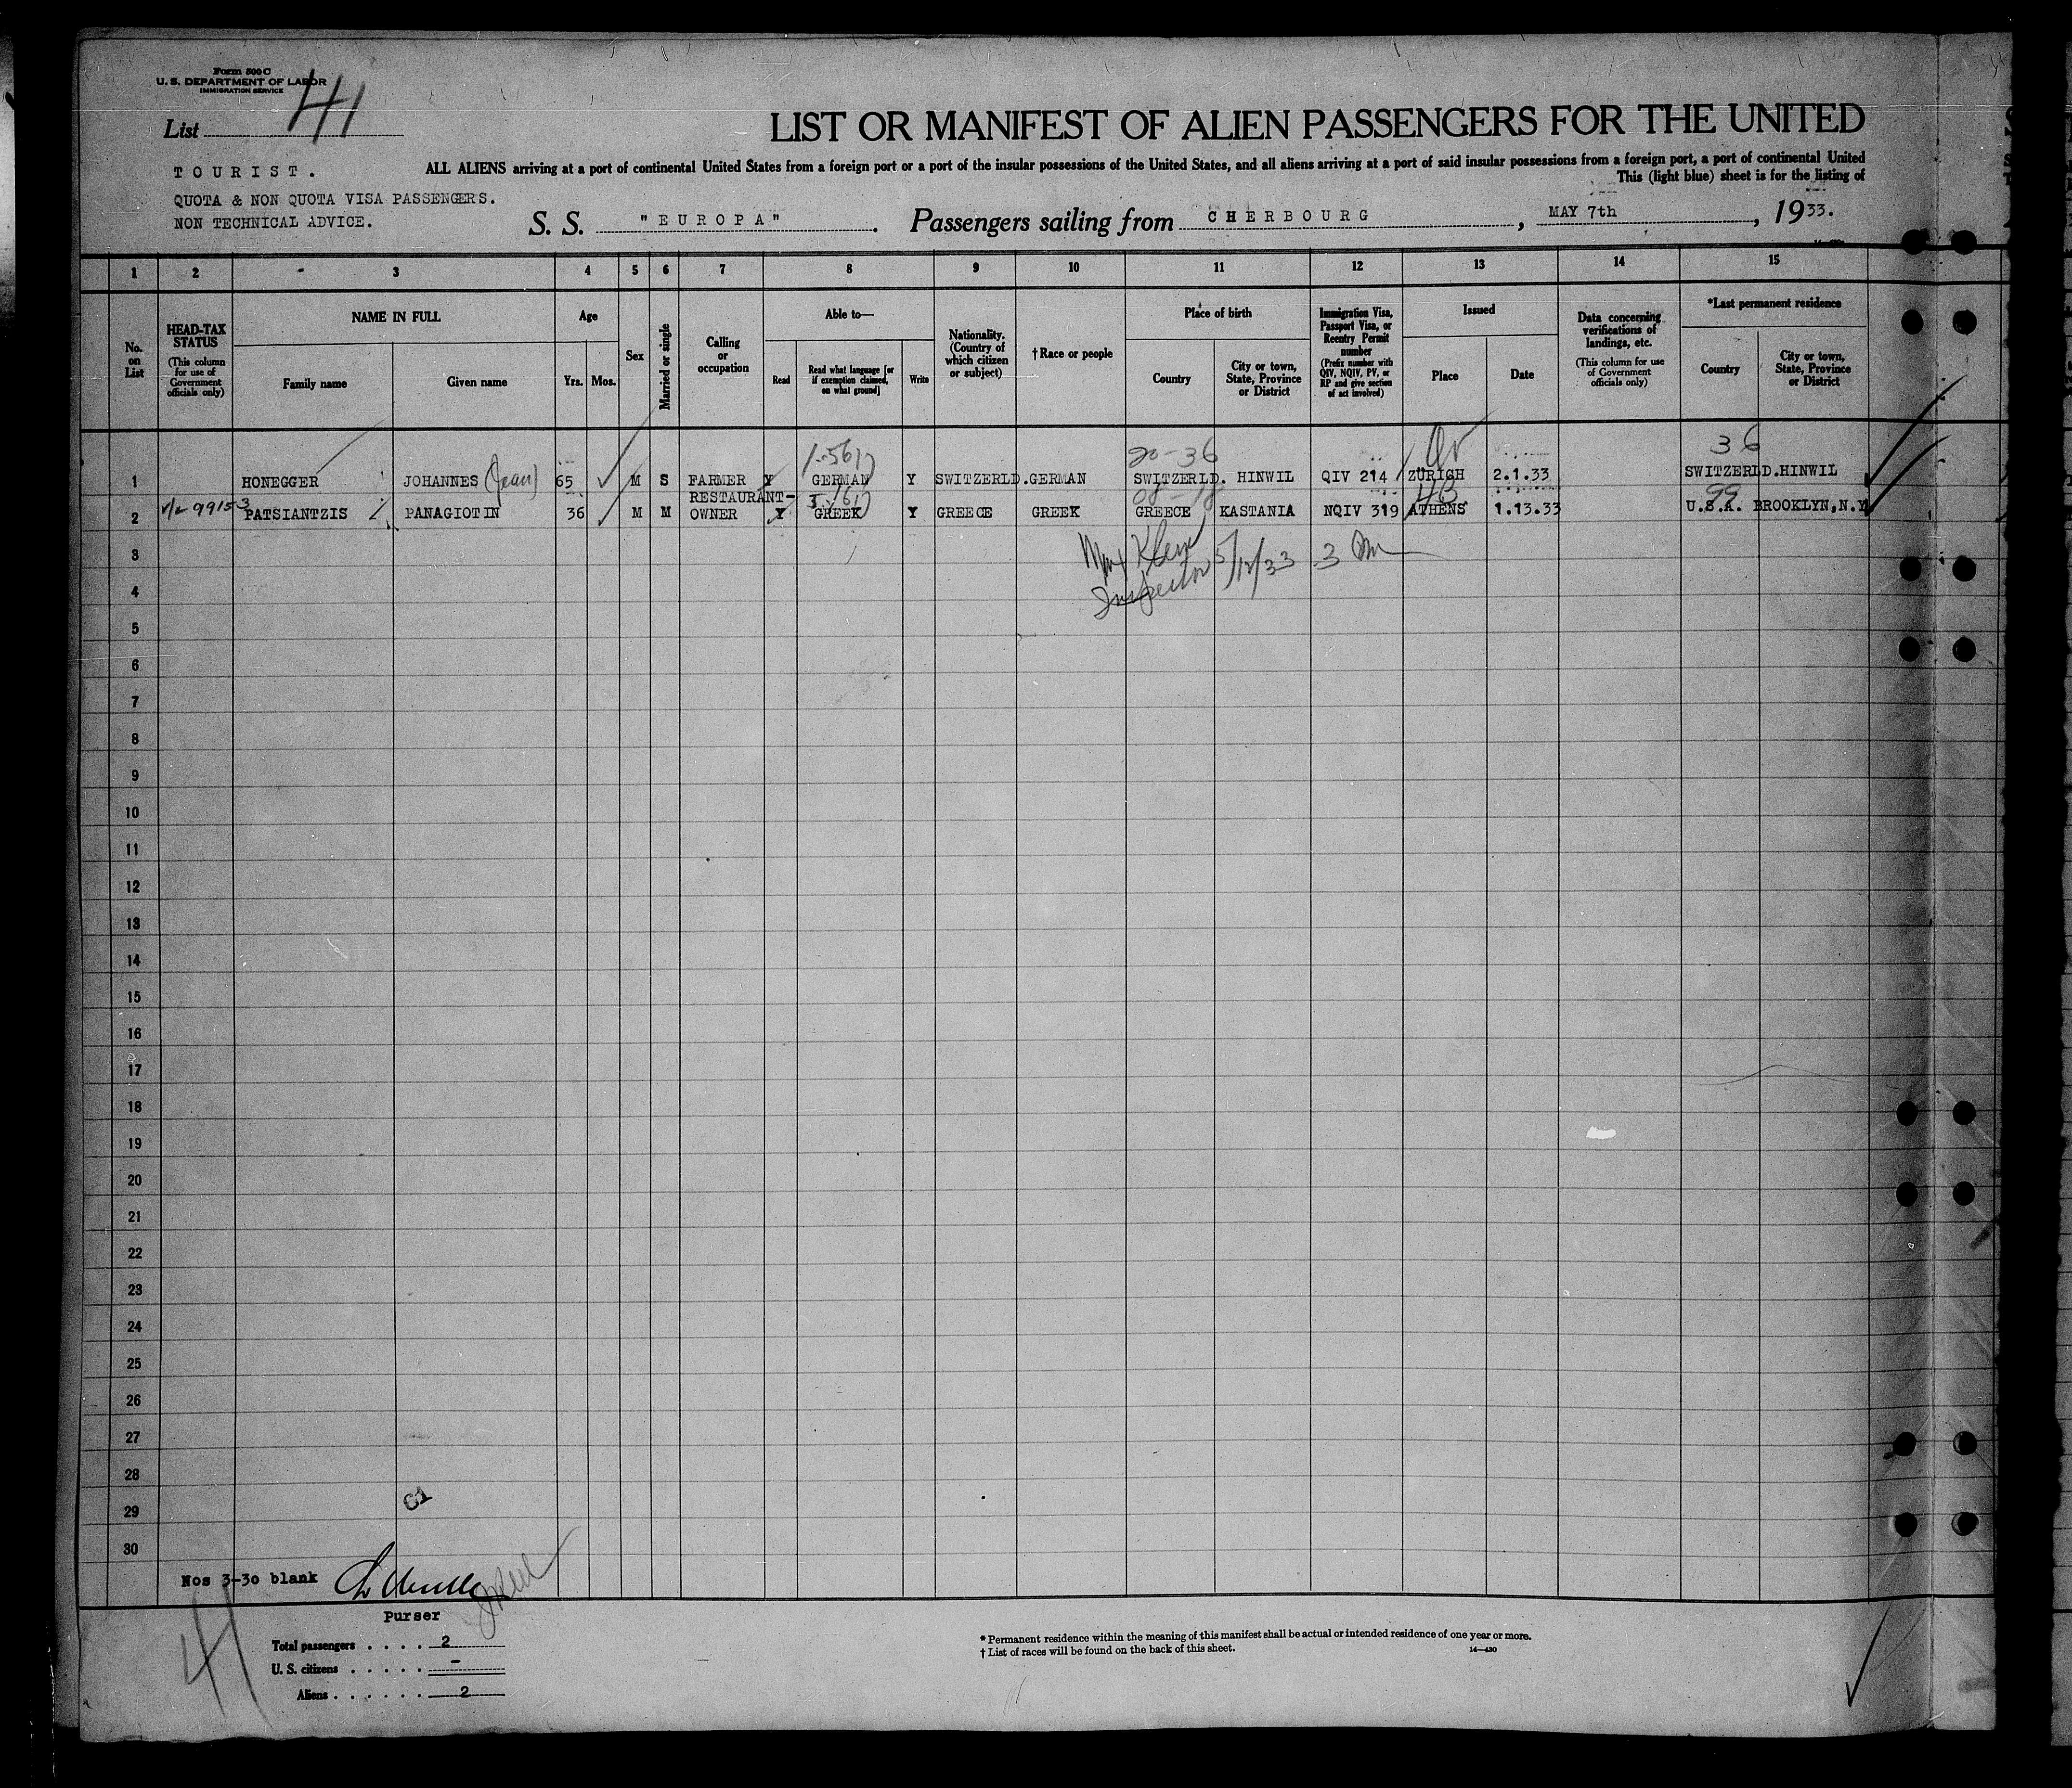 Form 500 C
U. S. DEPARTMENT OF LABOR
IMMIGRATION SERVICE
List 41
LIST OR MANIFEST OF ALIEN PASSENGERS FOR THE UNITED
TOURIST.
QUOTA & NON QUOTA VISA PASSENGERS.
NON TECHNICAL ADVICE.
ALL ALIENS arriving at a port of continental United States from a foreign port or a port of the insular possessions of the United States, and all aliens arriving at a port of said insular possessions from a foreign port, a port of continental United
This (light blue) sheet is for the listing of
S. S. "EUROPA". Passengers sailing from CHERBOURG, MAY 7th, 1933.
1 2 3 4 5 6 7 8 9 10 11 12 13 14 15
No. on List
HEAD-TAX STATUS (This column for use of Government officials only)
NAME IN FULL
Family name
Given name
Age
Yrs. Mos.
Sex
Married or single
Calling or occupation
Able to—
Read
Read what language [or if exemption claimed, on what ground]
Write
Nationality. (Country of which citizen or subject)
† Race or people
Place of birth
Country
City or town, State, Province or District
Immigration Visa, Passport Visa, or Reentry Permit number (Prefix number with QIV, NQIV, PV, or RP and give section of act involved)
Issued
Place
Date
Data concerning verifications of landings, etc. (This column for use of Government officials only)
*Last permanent residence
Country
City or town, State, Province or District
20-36 36
1 HONEGGER JOHANNES (Jean) 65 M S FARMER Y GERMAN Y SWITZERLD. GERMAN SWITZERLD. HINWIL QIV 214 ZURICH 2.1.33 SWITZERLD. HINWIL
99
2 99153 PATSIANTZIS PANAGIOTIN 36 M M RESTAURANT-OWNER Y GREEK Y GREECE GREEK GREECE KASTANIA NQIV 319 ATHENS 1.13.33 U.S.A. BROOKLYN, N.Y.
3
Klein 5/12/33 3
4
Inspector
5
6
7
8
9
10
11
12
13
14
15
16
17
18
19
20
21
22
23
24
25
26
27
28
29
30
Nos 3-30 blank
Purser
41
Total passengers . . . . 2
U. S. citizens . . . . . -
Aliens . . . . . . 2
* Permanent residence within the meaning of this manifest shall be actual or intended residence of one year or more.
† List of races will be found on the back of this sheet.
14—430